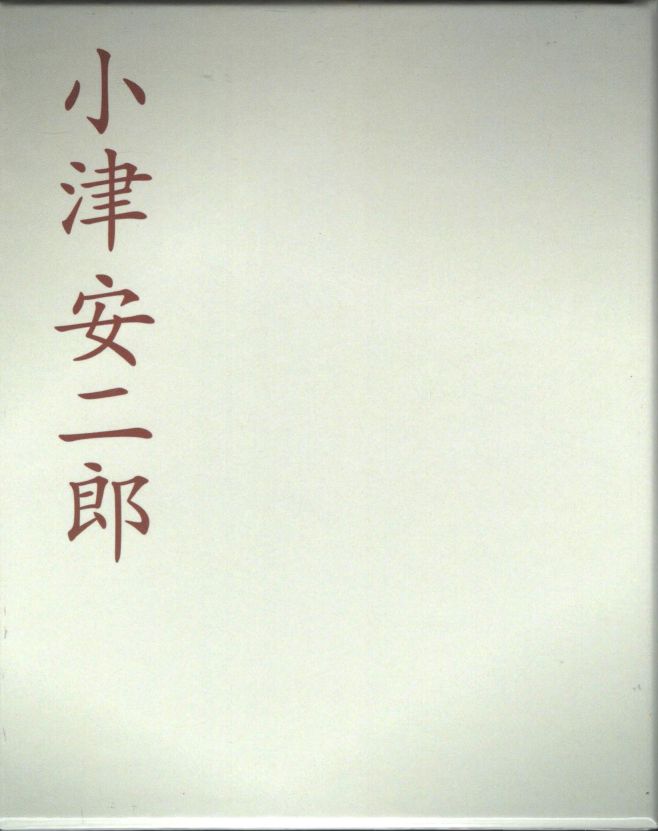 小津安二郎